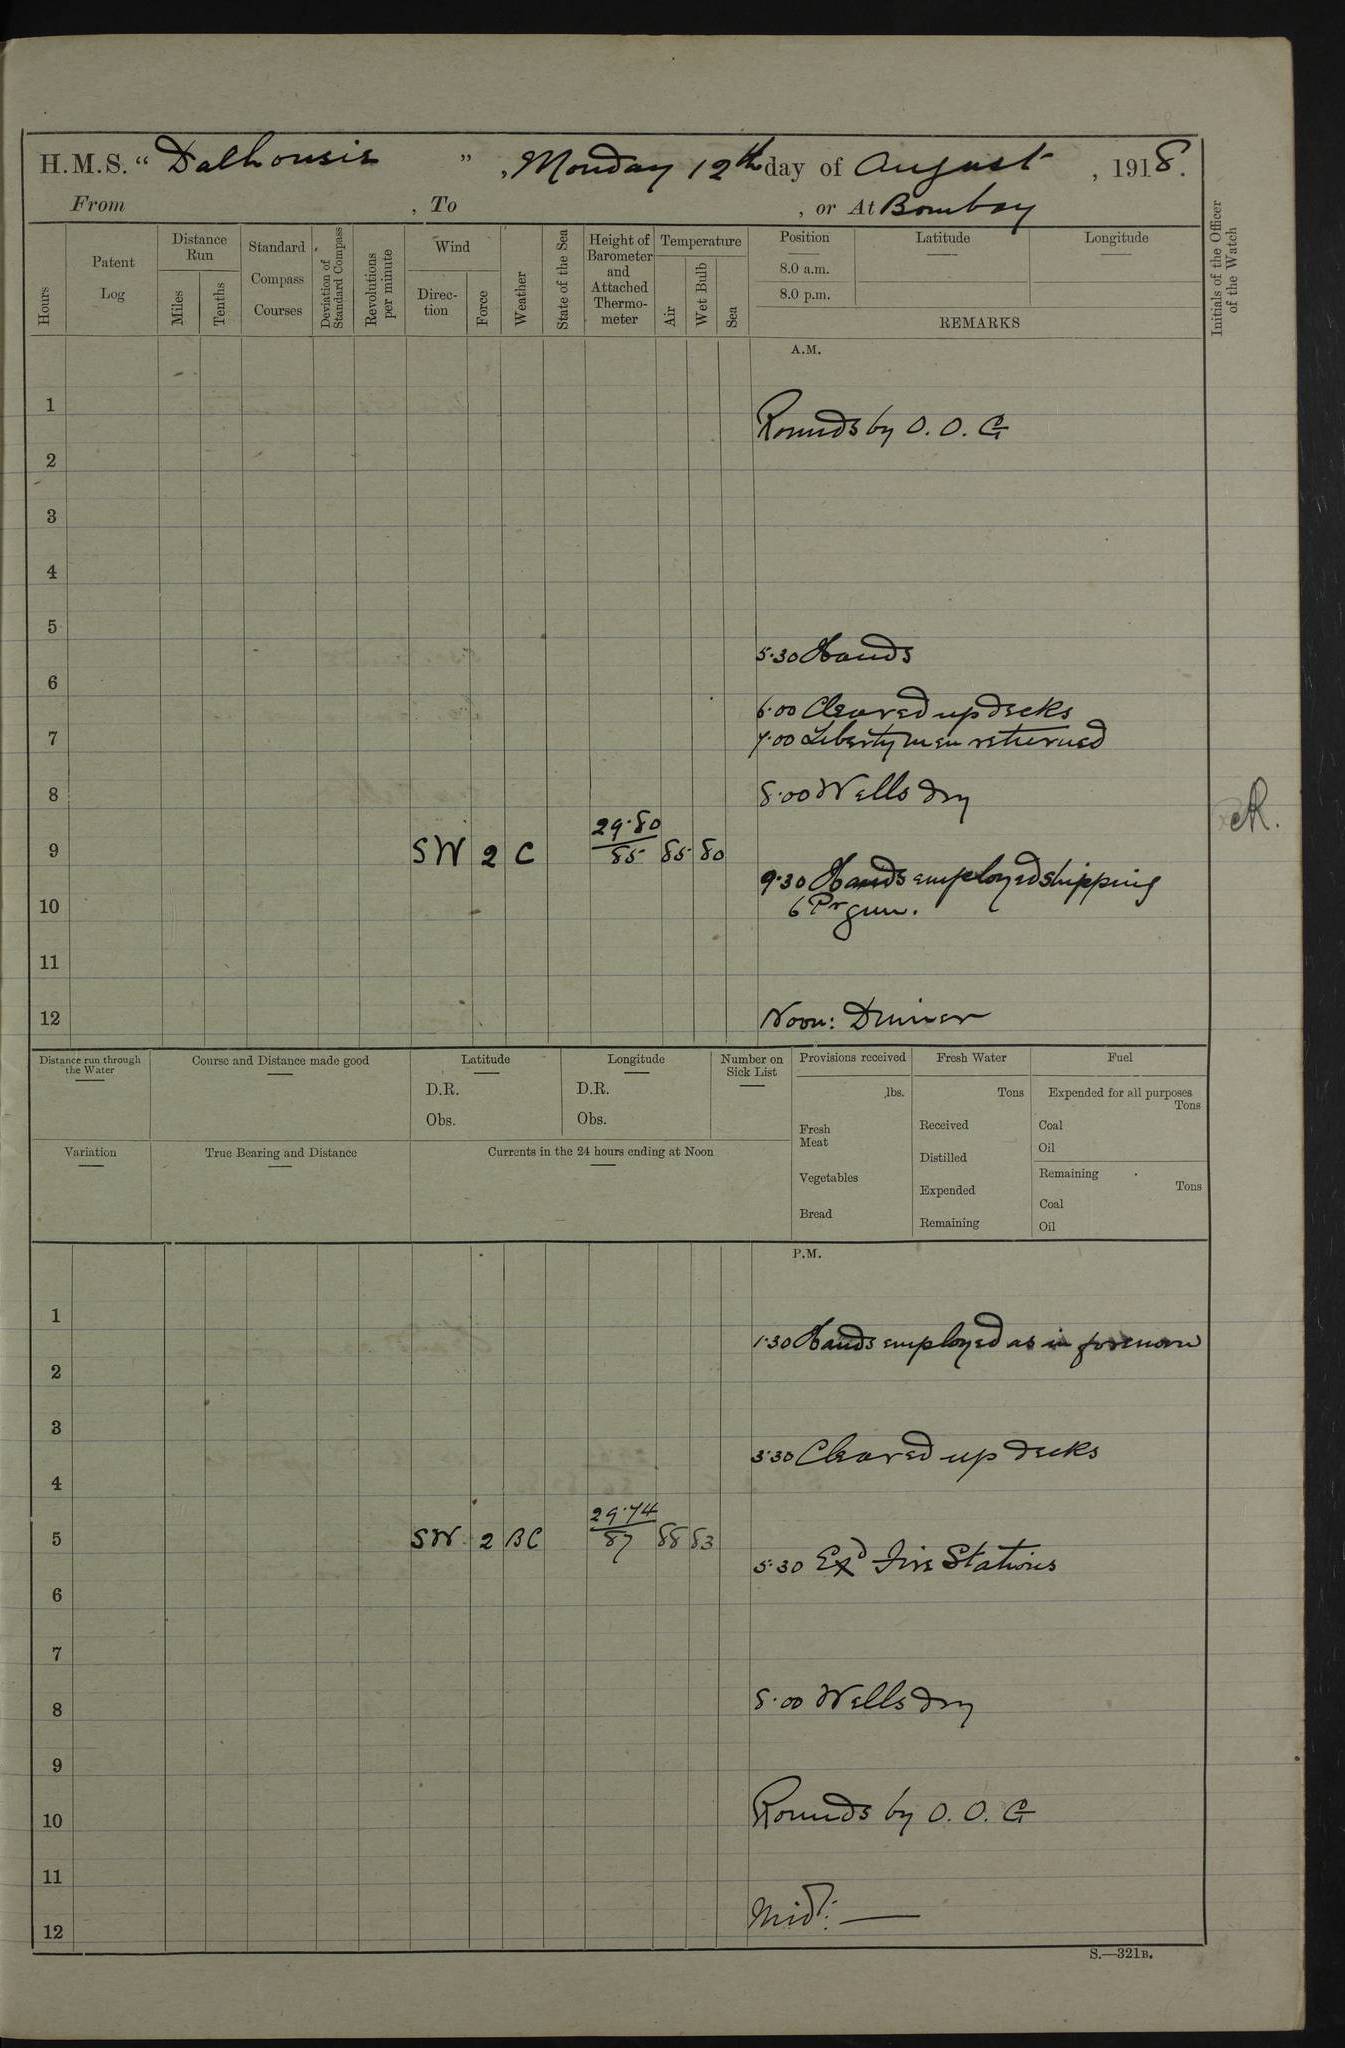 H.M.S. "Dalhousie", Monday 12th day of August, 1918.
From , To , or At Bombay
Hours
Patent Log
Distance Run
Miles
Tenths
Standard Compass Courses
Deviation of Standard Compass
Revolutions per minute
Wind
Direction
Force
Weather
State of the Sea
Height of Barometer and Attached Thermometer
Temperature
Air
Wet Bulb
Sea
Position
8.0 a.m.
8.0 p.m.
Latitude
Longitude
REMARKS
Initials of the Officer of the Watch
A.M.
1
Rounds by O. O. G
2
3
4
5
5.30 Hands
6
6.00 Cleared up decks
7 7.00 Liberty men returned
8 8.00 Wells dry
9 SW 2 C 29.80 85 85 80
9.30 Hands employed shipping
10 6 Pr gun.
11
12 Noon: Dinner
Distance run through the Water
Course and Distance made good
Latitude
D.R.
Obs.
Longitude
D.R.
Obs.
Number on Sick List
Provisions received
lbs.
Fresh Meat
Vegetables
Bread
Fresh Water
Tons
Received
Distilled
Expended
Remaining
Fuel
Expended for all purposes
Tons
Coal
Oil
Remaining
Tons
Coal
Oil
Variation
True Bearing and Distance
Currents in the 24 hours ending at Noon
P.M.
1
1.30 Hands employed as in forenoon
2
3
3.30 Cleared up decks
4
5 SW 2 BC 29.74 87 88 83
5.30 Exd Fire Stations
6
7
8 8.00 Wells dry
9
10 Rounds by O. O. G
11
12 Midt: —
S.—321B.